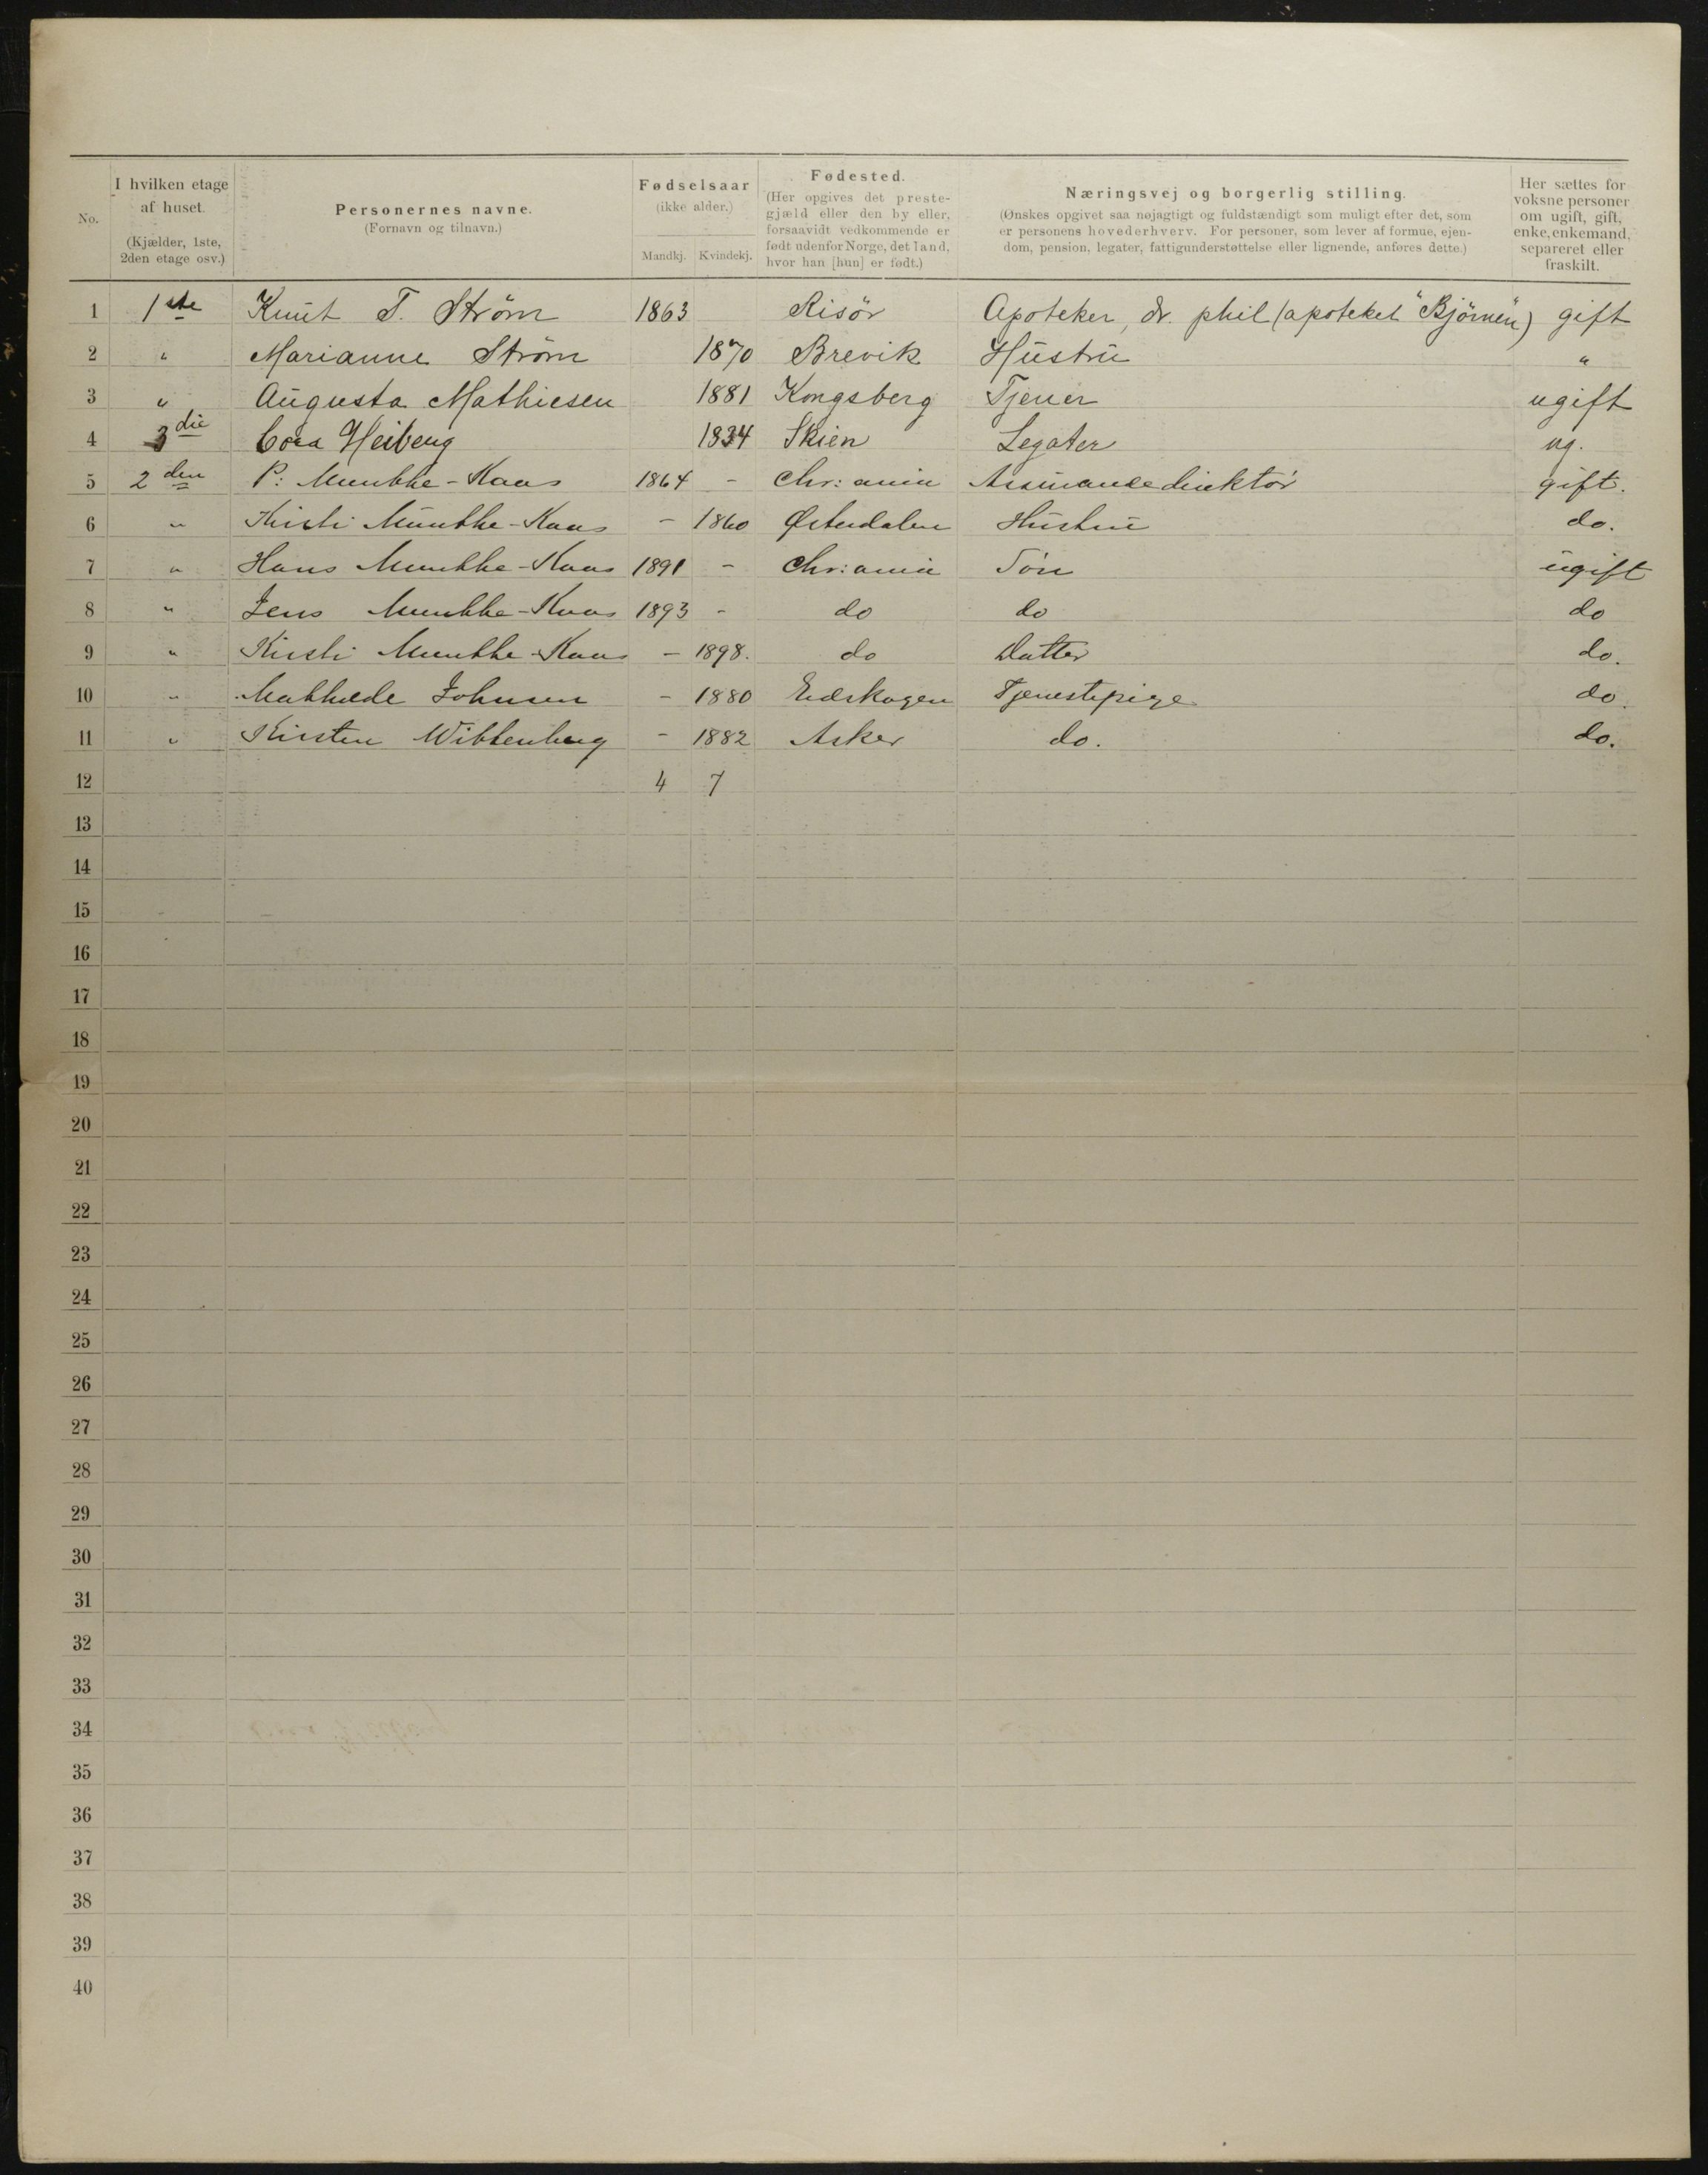 No.
I hvilken etage af huset.
(Kjælder, 1ste, 2den etage osv.)
Personernes navne.
(Fornavn og tilnavn.)
Fødselsaar
(ikke alder.)
Mandkj. Kvindekj.
Fødested.
(Her opgives det preste-
gjæld eller den by eller,
forsaavidt vedkommende er
født udenfor Norge, det land,
hvor han [hun] er født.)
Næringsvej og borgerlig stilling.
(Ønskes opgivet saa nøjagtigt og fuldstændigt som muligt efter det, som
er personens hovederhverv. For personer, som lever af formue, ejen-
dom, pension, legater, fattigunderstøttelse eller lignende, anføres dette.)
Her sættes for
voksne personer
om ugift, gift,
enke, enkemand,
separeret eller
fraskilt.
1 1ste Knut T. Strøm 1863 Risør Apoteker, dr. phil (apoteket "Bjørnen") gift
2 " Marianne Strøm 1870 Brevik Hustru "
3 " Augusta Mathiesen 1881 Kongsberg Tjener ugift
4 3die Cora Heiberg 1834 Skien Legater ug.
5 2den P. Munthe-Kaas 1864 - Chr:ania Assurancedirektør gift.
6 " Kirsti Munthe-Kaas - 1860 Østerdalen Hustru do.
7 " Hans Munthe-Kaas 1891 - Chr:ania Søn ugift
8 " Jens Munthe-Kaas 1893 - do do do
9 " Kirsti Munthe-Kaas - 1898. do Datter do.
10 " Mathilde Johnsen - 1880 Eidskogen Tjenestepige do.
11 " Kirsten Wittenberg - 1882 Asker do. do.
12 4 7
13
14
15
16
17
18
19
20
21
22
23
24
25
26
27
28
29
30
31
32
33
34
35
36
37
38
39
40